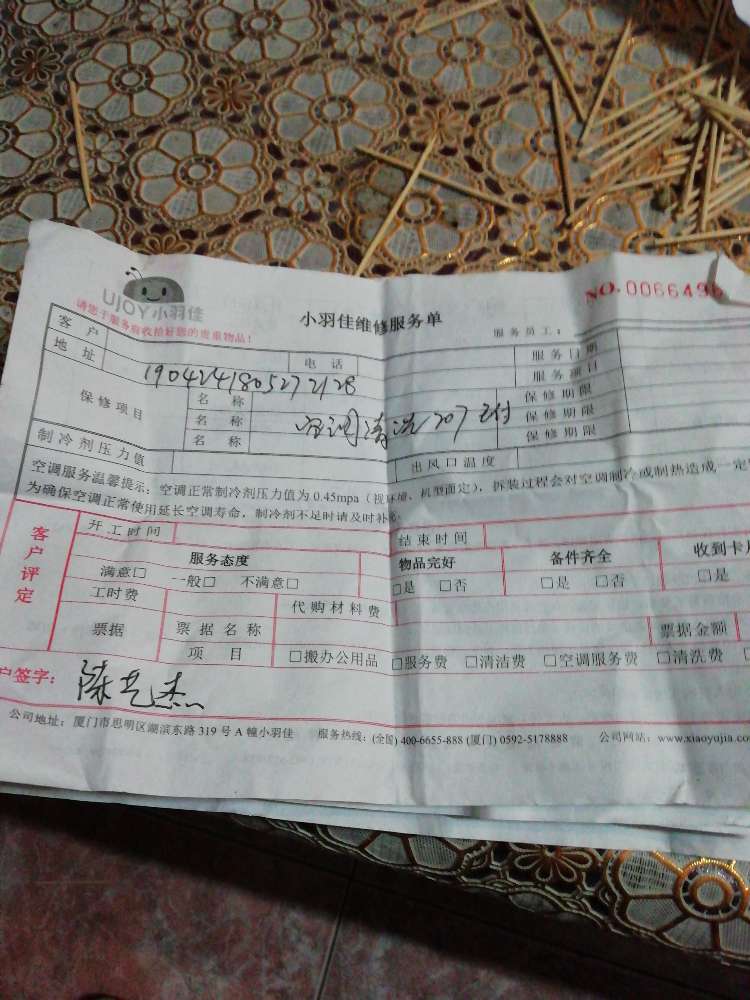 UJOY小羽佳
请您于服务前收拾好您的贵重物品!
小羽佳维修服务单
NO.006649
服务员工:
客户
电话
服务日期
地址
服务项目
1904241805272128
保修项目
名称
保修期限
名称
空调清洗207已付
保修期限
名称
保修期限
制冷剂压力值
出风口温度
空调服务温馨提示:空调正常制冷剂压力值为0.45mpa(视环境、机型而定),拆装过程会对空调制冷或制热造成一定
为确保空调正常使用延长空调寿命,制冷剂不足时请及时补充。
客户评定
开工时间
结束时间
服务态度
物品完好
备件齐全
收到卡
满意□ 一般□ 不满意□
□是 □否
□是 □否
□是
工时费
代购材料费
票据
票据名称
票据金额
项目
□搬办公用品 □服务费 □清洁费 □空调服务费 □清洗费
户签字:
陈艺杰
公司地址:厦门市思明区湖滨东路319号A幢小羽佳 服务热线:(全国)400-6655-888(厦门)0592-5178888 公司网站:www.xiaoyujia.co